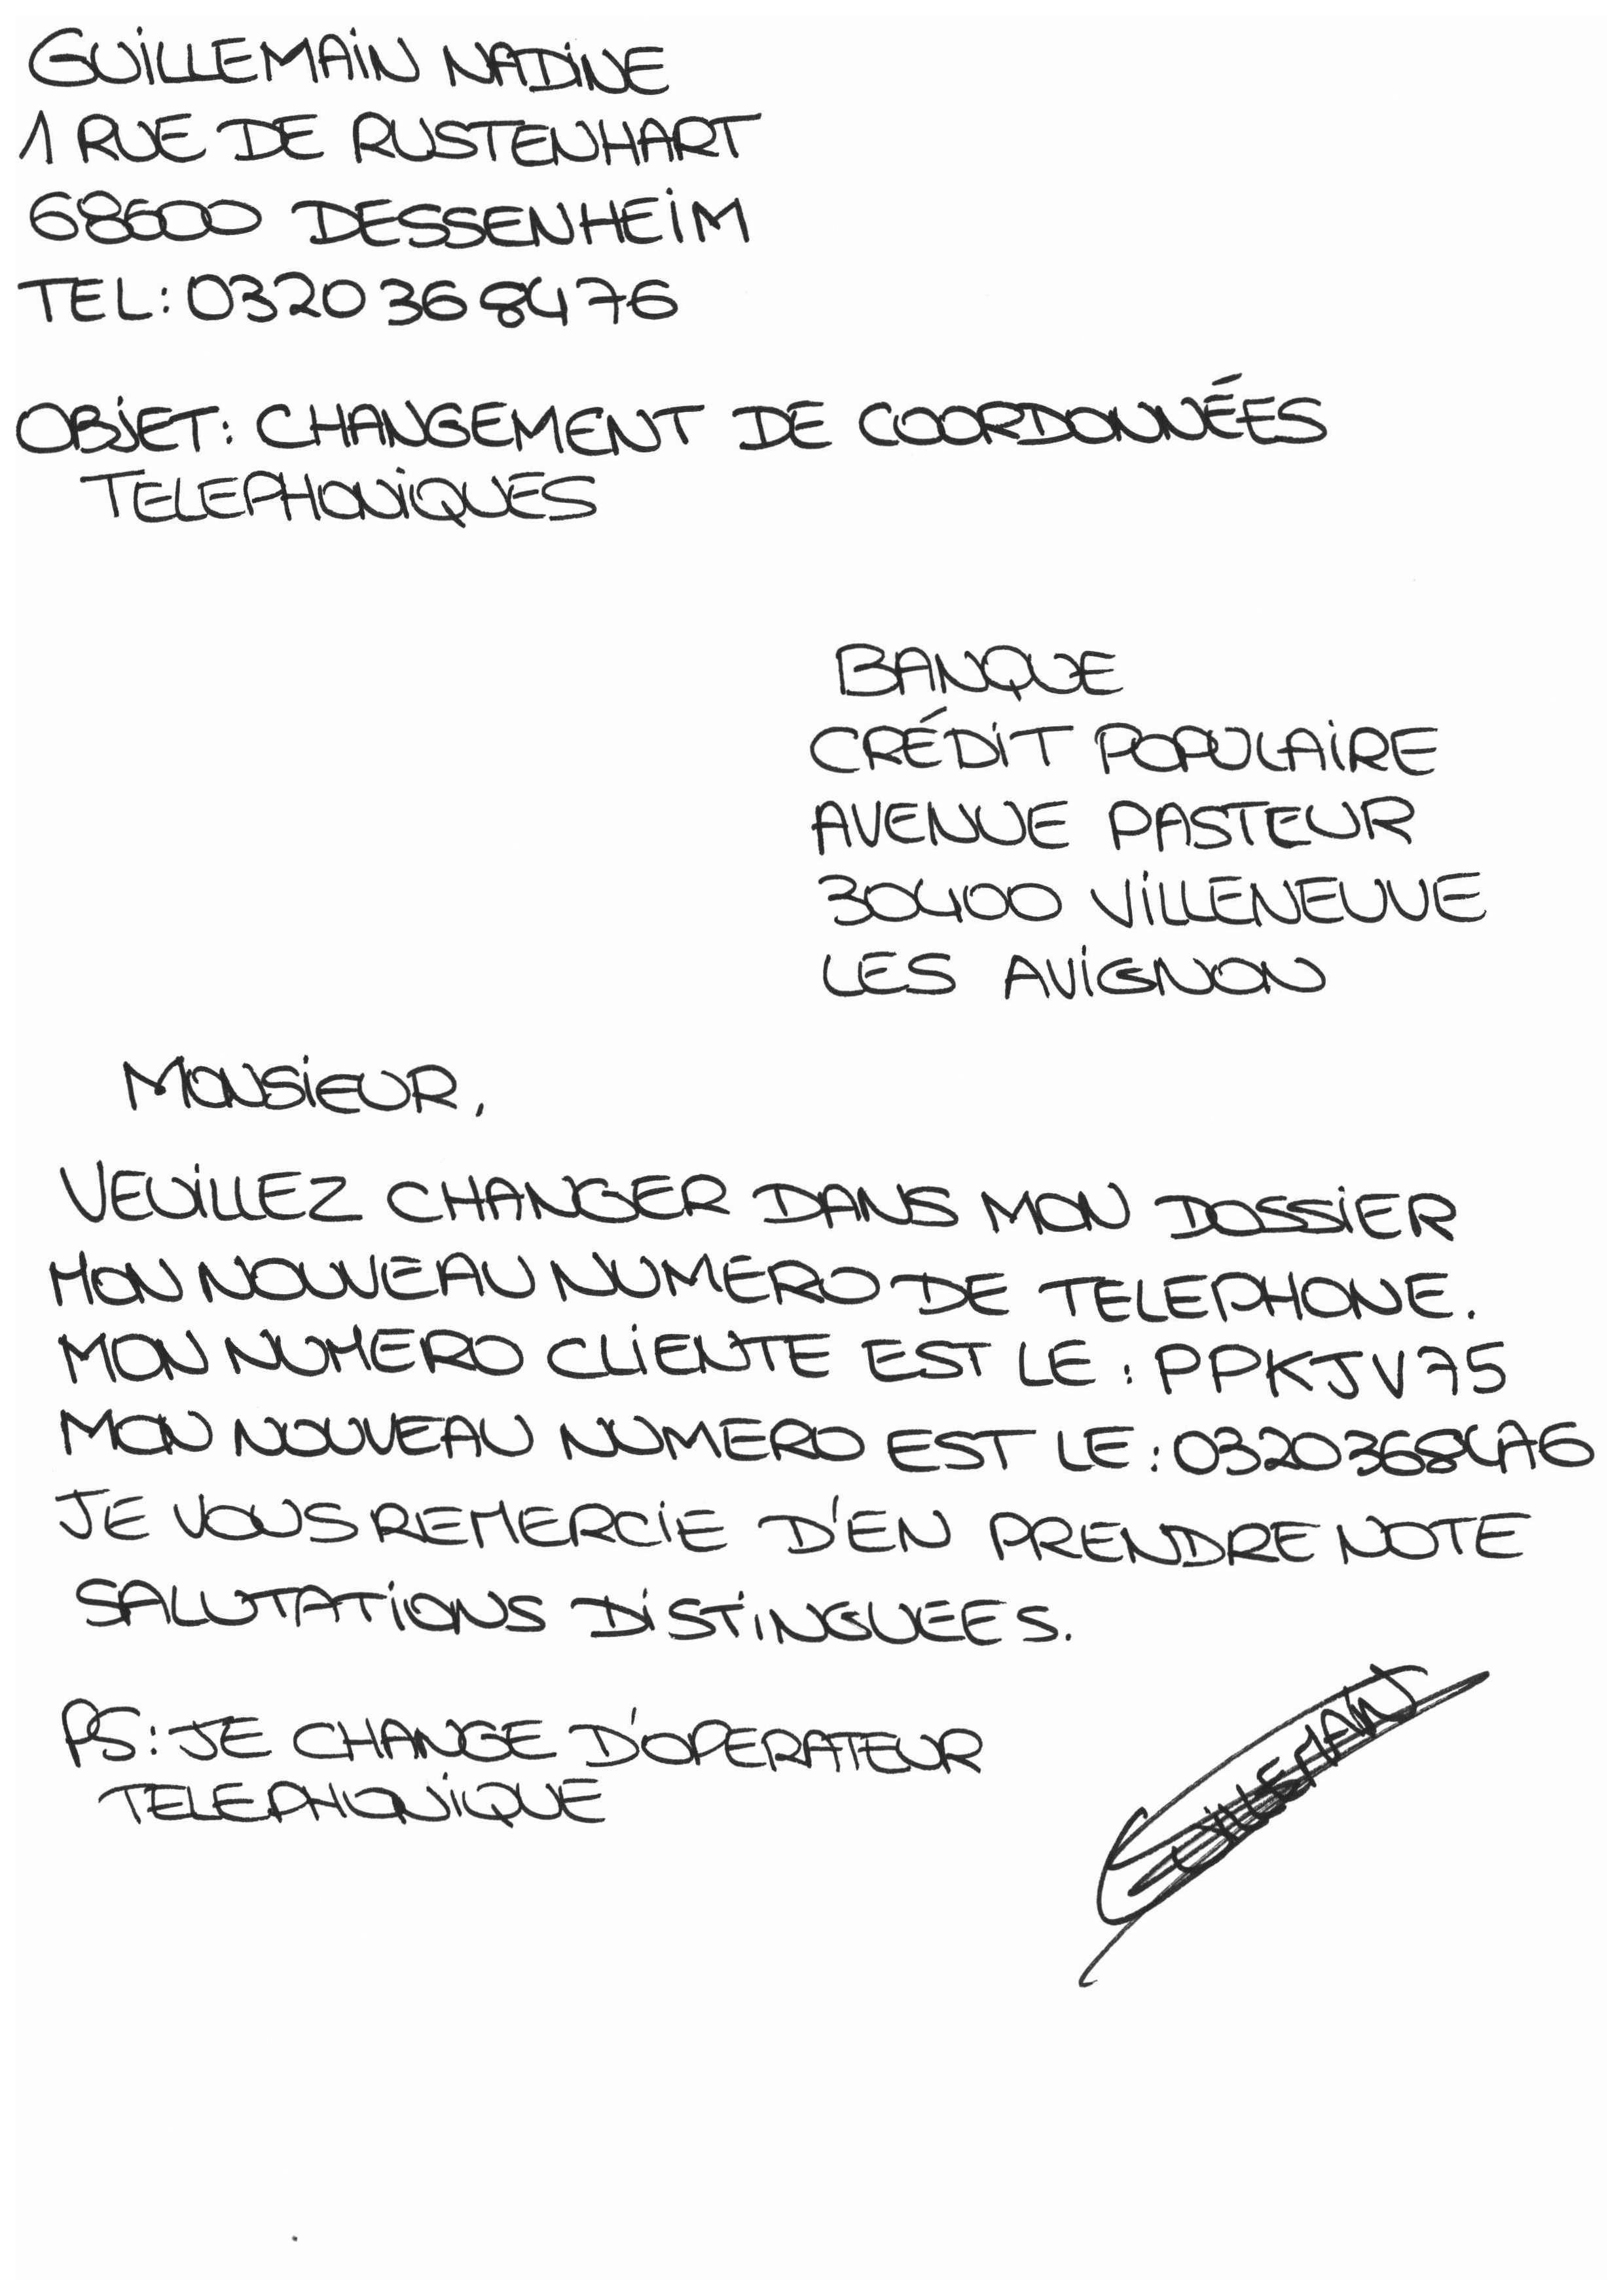 GUILLEMAIN NADINE
1 RUE DE RUSTENHART
68600 DESSENHEIM
TEL: 0320368476
OBJET: CHANGEMENT DE COORDONNÉES
TELEPHONIQUES
BANQUE
CRÉDIT POPULAIRE
AVENUE PASTEUR
30400 VILLENEUVE
LES AVIGNON
MONSIEUR,
VEUILLEZ CHANGER DANS MON DOSSIER
MON NOUVEAU NUMERO DE TELEPHONE.
MON NUMERO CLIENTE EST LE: PPKJV75
MON NOUVEAU NUMERO EST LE: 0320368476
JE VOUS REMERCIE D'EN PRENDRE NOTE
SALUTATIONS DISTINGUEES.
PS: JE CHANGE D'OPERATEUR
TELEPHONIQUE
GUILLEMAIN